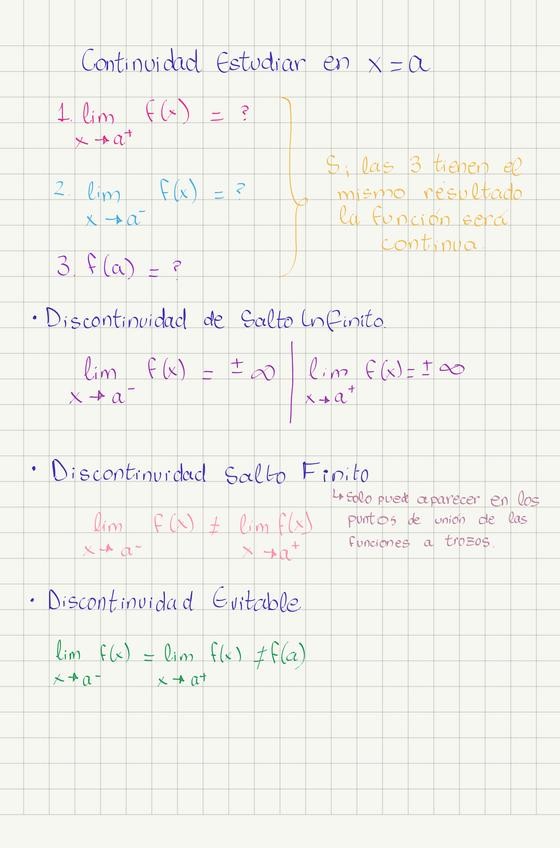 Continuidad Estudiar en x = a
1. lim f(x) = ?
x → a⁺
2. lim f(x) = ?
x → a⁻
3. f(a) = ?
Si las 3 tienen el
mismo resultado
la función será
continua.
• Discontinuidad de Salto Infinito.
lim f(x) = ± ∞ | lim f(x) = ± ∞
x → a⁻ x → a⁺
• Discontinuidad Salto Finito
↳ Solo puede aparecer en los
puntos de unión de las
funciones a trozos.
lim f(x) ≠ lim f(x)
x → a⁻ x → a⁺
• Discontinuidad Evitable
lim f(x) = lim f(x) ≠ f(a)
x → a⁻ x → a⁺